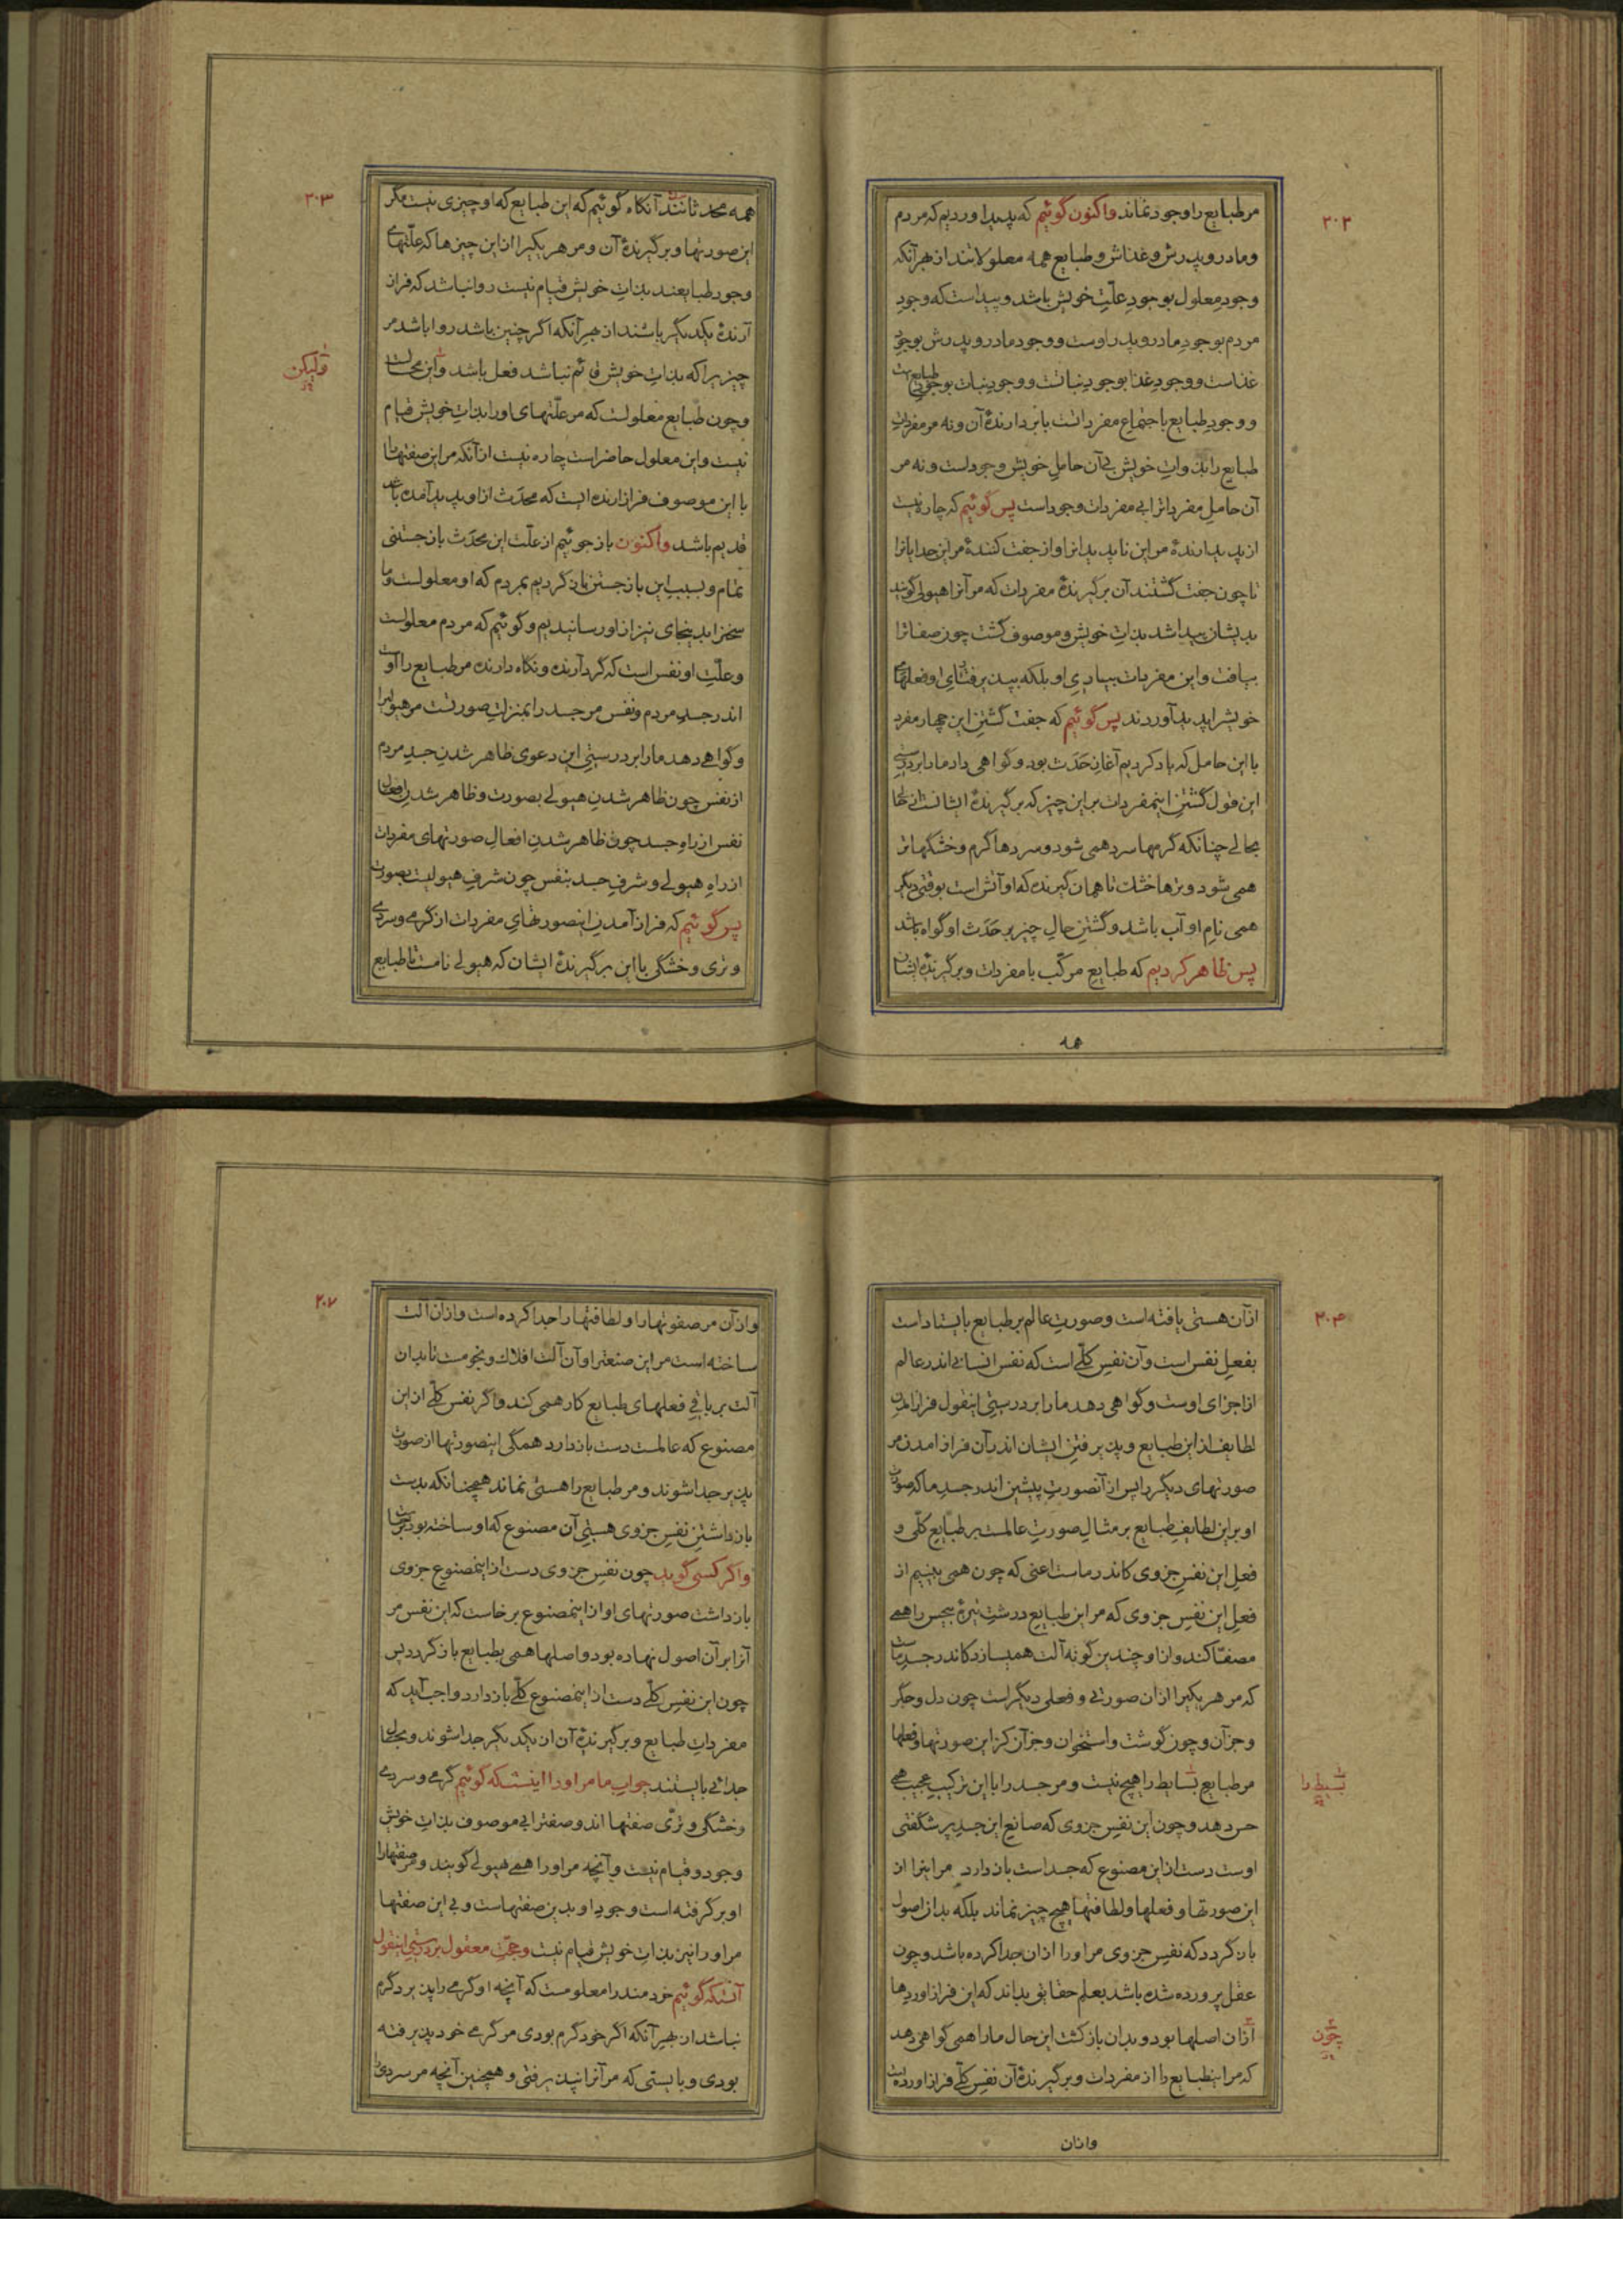 ۲۰۲
مر طبایع را وجود نماند واکنون گوئیم که پدید اوردیم که مردم
و مادر و پدرش و غذاش و طبایع همه معلولاتند از بهر آنکه
وجودِ معلول بوجودِ علّتِ خویش باشد و پیداست که وجودِ
مردم بوجودِ مادر و پدر اوست و وجود مادر و پدرش بوجودِ
غذاست و وجودِ غذا بوجودِ نباتست و وجودِ نبات بوجودِ طبایعست
و وجودِ طبایع باجتماعِ مفرداتست با بردارندهٔ آن و نه مر مفرداتِ
طبایع را بذواتِ خویش بی آن حاملِ خویش وجود است و نه مر
آن حاملِ مفرداترا بی مفردات وجود است پس گوئیم که چاره نیست
از پدیدارندهٔ مر این ناپدیدانرا و از جفت کنندهٔ مر این جدایانرا
تا چون جفت گشتند آن برگیرندهٔ مفردات که مر آنرا هیولی گویند
بدیشان پیدا شد بذاتِ خویش و موصوف گشت چون صفاترا
بیافت و این مفردات بیاریِ او بلکه بپذیرفتنای او فعلهای
خویشرا پدید آوردند پس گوئیم که جفت گشتنِ این چهار مفرد
با این حامل که یاد کردیم آغازِ حَدَث بود و گواهی داد ما را بر درستیِ
این قول گشتنِ اینمفردات بر این چیز که برگیرندهٔ ایشانست از حالی
بحالی چنانکه گرمها سرد همی شود و سردها گرم و خشکها تر
همی شود و ترها خشک تا همان گیرنده که او آتش است بوقتی دیگر
همی نامِ او آب باشد و گشتنِ حالِ چیز بر حَدَث او گواه باشد
پس ظاهر کردیم که طبایعِ مرکّب با مفردات و برگیرندهٔ ایشان
همه
۲۰۳
همه محدثانند آنگاه گوئیم که این طبایع که او چیزی نیست مگر
این صورتها و برگیرندهٔ آن و مر هر یکیرا از این چیزها که علّتهای
وجود طبایعند بذاتِ خویش قیام نیست روا نباشد که فراز
آرندهٔ یکدیگر باشند از بهر آنکه اگر چنین باشد روا باشد مر
چیزیرا که بذاتِ خویش قائم نباشد فعل باشد و این محالست
ولیکن
و چون طبایع معلولست که مر علّتهای او را بذاتِ خویش قیام
نیست و این معلول حاضر است چاره نیست از آنکه مر این صفتهارا
با این موصوف فراز ارنده ایست که محدَث از او پدید آمده باشد
قدیم باشد واکنون باز جوئیم از علّت این محدَث باز جستنی
تمام و بسببِ این باز جستن یاد کردیم بمردم که او معلولست و ما
سخنرا بدینجای نیز از او رسانیدیم و گوئیم که مردم معلولست
و علّتِ او نفس است که گرد آرنده و نگاه دارنده مر طبایع را اوست
اندر جسدِ مردم و نفس مر جسد را بمنزلتِ صورتست مر هیولیرا
و گواهی دهد ما را بر درستیِ این دعوی ظاهر شدنِ جسدِ مردم
از نفس چون ظاهر شدنِ هیولی بصورت و ظاهر شدنِ افعالِ
نفس از راهِ جسد چون ظاهر شدنِ افعالِ صورتهای مفردات
از راهِ هیولی و شرفِ جسد بنفس چون شرفِ هیولیست بصورت
پس گوئیم که فراز آمدنِ اینصورتهایِ مفردات از گرمی و سردی
و تری و خشکی با این برگیرندهٔ ایشان که هیولی نامست تا طبایع
۲۰۴
از آن هستی یافته است و صورتِ عالم بر طبایع بایستاد است
بفعلِ نفس است و آن نفسِ کلّی است که نفس انسانی اندر عالم
از اجزای اوست و گواهی دهد ما را بر درستیِ اینقول فراز امدنِ
لطایف از این طبایع و پذیرفتنِ ایشان اندر آن فراز امدن مر
صورتهای دیگر را پس از آنصورتِ پیشین اندر جسدِ ما که صورت
او بر این لطایفِ طبایع بر مثالِ صورتِ عالمست بر طبایع کلّی و
فعلِ این نفسِ جزوی کاندر ماست اعنی که چون همی بینیم از
فعلِ این نفسِ جزوی که مر این طبایعِ درشتِ تیرهٔ بیجس را همی
مصفّا کند و از او چندین گونه آلت همیسازد کاندر جسدِ ماست
که مر هر یکیرا از ان صورتی و فعلی دیگر است چون دل و جگر
و جز آن و چون گوشت و استخوان و جز آن کز این صورتها و فعلها
مر طبایعِ بسایط را هیچ نیست و مر جسد را با این ترکیبِ عجیب همی
بسیط را
حس دهد و چون این نفسِ جزوی که صانعِ این جسدِ پر شگفتی
اوست دست از این مصنوع که جسد است باز دارد مر اینرا از
این صورتها و فعلها و لطافتها هیچ چیز نماند بلکه بدان اصول
باز گردد که نفسِ جزوی مر او را از ان جدا کرده باشد و چون
عقل پرورده شده باشد بعلمِ حقایق بداند که این فراز اوردها
از ان اصلها بود و بدان باز گشت این حال ما را همی گواهی دهد
چون
که مر اینطبایع را از مفردات و برگیرندهٔ آن نفسِ کلّی فراز اورده است
و از ان
۲۰۷
و از آن مر صفوتها را و لطافتها را جدا کرده است و از ان آلت
ساخته است مر این صنعترا و آن آلت افلاك و نجومست تا بدان
آلت بر باقیِ فعلهای طبایع کار همی کند و اگر نفس کلّی از این
مصنوع که عالمست دست باز دارد همگی اینصورتها از صورت
پذیر جدا شوند و مر طبایع را هستی نماند همچنانکه بدست
باز داشتنِ نفس جزوی هستیِ آن مصنوع که او ساخته بود
و اگر کسی گوید چون نفسِ جزوی دست از اینمصنوعِ جزوی
باز داشت صورتهای او از اینمصنوع برخاست که این نفس مر
آنرا بر آن اصول نهاده بود و اصلها همی بطبایع باز گردد پس
چون این نفسِ کلّی دست از اینمصنوعِ کلّی باز دارد واجب آید که
مفرداتِ طبایع و برگیرندهٔ آن از یکدیگر جدا شوند و بحالِ
جدائی بایستند جوابِ ما مر او را اینست که گوئیم گرمی و سردی
و خشکی و ترّی صفتها اند و صفترا بی موصوف بذاتِ خویش
وجود و قیام نیست و آنچه مر او را همی هیولی گویند و مر صفتهارا
او بر گرفته است وجودِ او بدین صفتهاست و بی این صفتها
مر او را نیز بذاتِ خویش قیام نیست و حجّتِ معقول بر درستیِ اینقول
آنستکه گوئیم خردمند را معلومست که آنچه او گرمی را پذیرد گرم
نباشد از بهر آنکه اگر خود گرم بودی مر گرمی خود پذیرفته
بودی و بایستی که مر آنرا نپذیرفتی و همچنین آنچه مر سردی